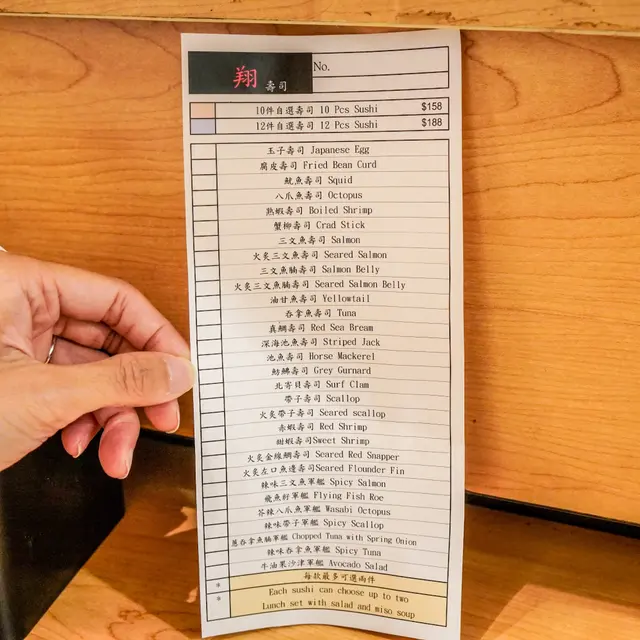 翔 壽司 No.
10件自選壽司 10 Pcs Sushi $158
12件自選壽司 12 Pcs Sushi $188
玉子壽司 Japanese Egg
腐皮壽司 Fried Bean Curd
魷魚壽司 Squid
八爪魚壽司 Octopus
熟蝦壽司 Boiled Shrimp
蟹柳壽司 Crad Stick
三文魚壽司 Salmon
火炙三文魚壽司 Seared Salmon
三文魚腩壽司 Salmon Belly
火炙三文魚腩壽司 Seared Salmon Belly
油甘魚壽司 Yellowtail
吞拿魚壽司 Tuna
真鯛壽司 Red Sea Bream
深海池魚壽司 Striped Jack
池魚壽司 Horse Mackerel
魴鮄壽司 Grey Gurnard
北寄貝壽司 Surf Clam
帶子壽司 Scallop
火炙帶子壽司 Seared scallop
赤蝦壽司 Red Shrimp
甜蝦壽司Sweet Shrimp
火炙金線鯛壽司 Seared Red Snapper
火炙左口魚邊壽司Seared Flounder Fin
辣味三文魚軍艦 Spicy Salmon
飛魚籽軍艦 Flying Fish Roe
芥辣八爪魚軍艦 Wasabi Octopus
辣味帶子軍艦 Spicy Scallop
蔥吞拿魚腩軍艦 Chopped Tuna with Spring Onion
辣味吞拿魚軍艦 Spicy Tuna
牛油果沙津軍艦 Avocado Salad
每款最多可選兩件
Each sushi can choose up to two
Lunch set with salad and miso soup